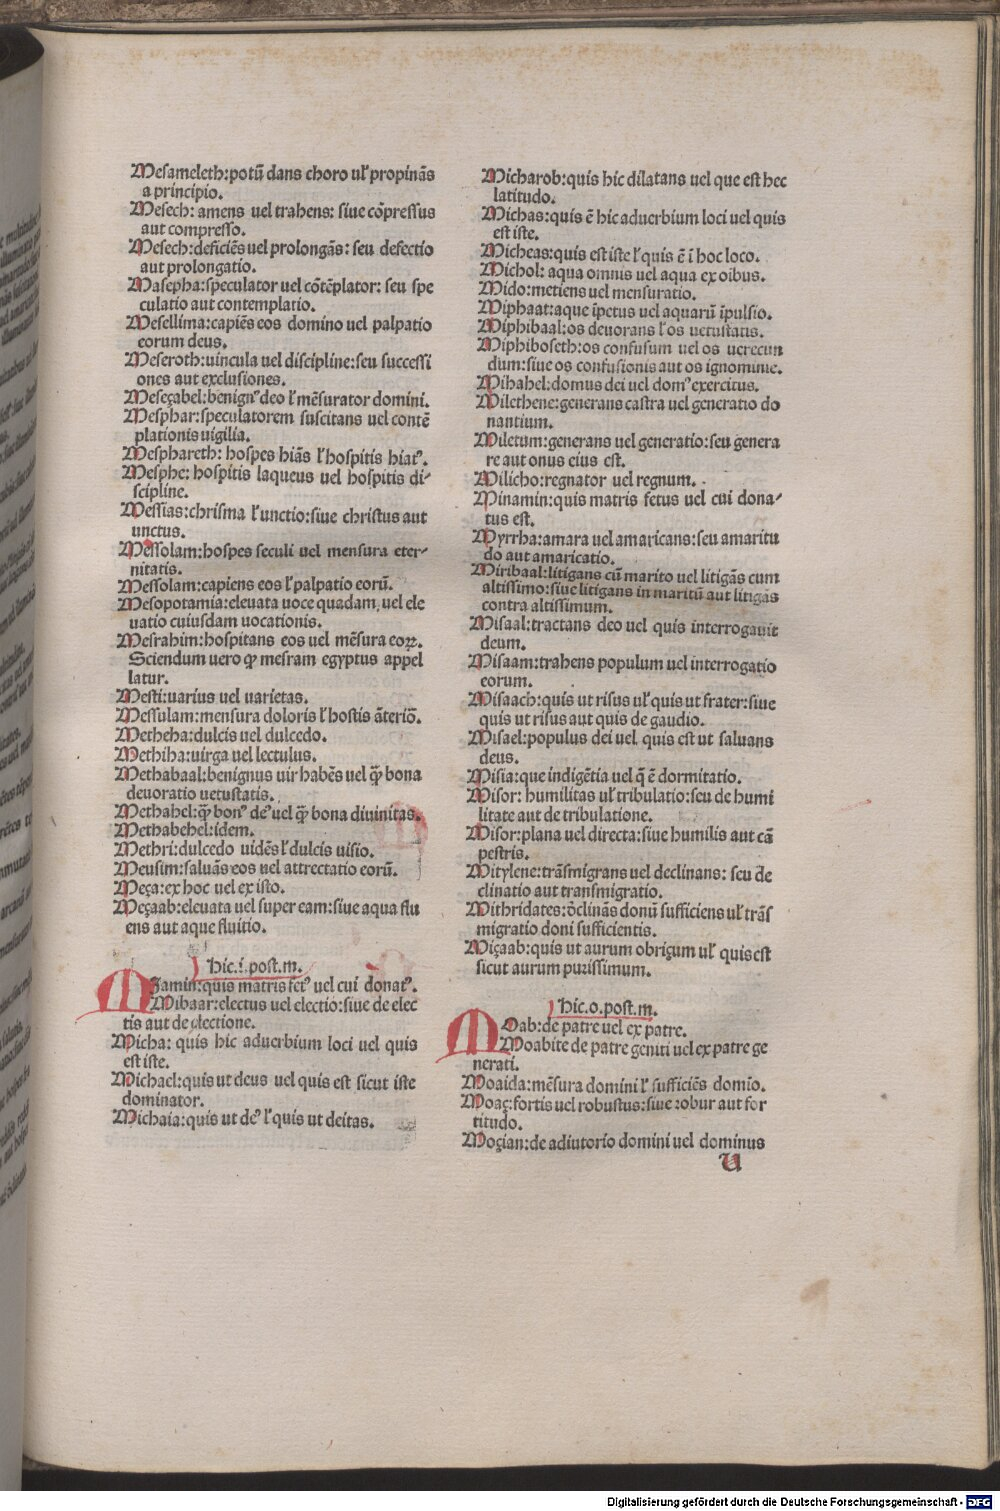 Mesameleth:potū dans choro ul' propinās
a principio.
Mesech: amens uel trahens: siue cōpressus
aut compresso.
Mesech:deficiēs uel prolongās: seu defectio
aut prolongatio.
Masepha:speculator uel cōtēplator: seu spe
culatio aut contemplatio.
Mesellima:capiēs eos domino uel palpatio
eorum deus.
Meseroth:uincula uel discipline:seu successi
ones aut exclusiones.
Meseçabel:benignꝰ deo l' mēsurator domini.
Mesphar:speculatorem suscitans uel contē
plationis uigilia.
Mesphareth: hospes hiās l' hospitis hiatꝰ.
Mesphe: hospitis laqueus uel hospitis di-
scipline.
Messias:chrisma l' unctio:siue christus aut
unctus.
Messolam:hospes seculi uel mensura eter-
nitatis.
Messolam:capiens eos l' palpatio eorū.
Mesopotamia:eleuata uoce quadam uel ele
uatio cuiusdam uocationis.
Mesrahim:hospitans eos uel mēsura eoꝝ.
Sciendum uero ꝙ mesram egyptus appel
latur.
Mesti:uarius uel varietas.
Messulam:mensura doloris l' hostis āteriō.
Metheha:dulcis uel dulcedo.
Methiha:uirga uel lectulus.
Methabaal:benignus uir habēs uel q̄ȝ bona
deuoratio uetustatis.
Methahel:q̄ȝ bonꝰ deꝰ uel q̄ȝ bona diuinitas.
Methabehel:idem.
Methri:dulcedo uidēs l' dulcis uisio.
Meusim:saluās eos uel attrectatio eorū.
Meça:ex hoc uel ex isto.
Meçaab:eleuata uel super eam:siue aqua flu
ens aut aque fluitio.
Hic.i.post.m.
MIamin:quis matris fetꝰ uel cui donatꝰ.
Mibaar:electus uel electio:siue de elec
tis aut de electione.
Micha: quis hic aduerbium loci uel quis
est iste.
Michael:quis ut deus uel quis est sicut iste
dominator.
Michaia:quis ut deꝰ l' quis ut deitas.
Micharob:quis hic dilatans uel que est hec
latitudo.
Michas:quis ē hic aduerbium loci uel quis
est iste.
Micheas:quis est iste l' quis ē ī hoc loco.
Michol: aqua omnis uel aqua ex oibus.
Mido:metiens uel mensuratio.
Miphaat:aque īpetus uel aquarū īpulsio.
Miphibaal:os deuorans l' os uetustatis.
Miphiboseth:os confusum uel os uerecun
dum:siue os confusionis aut os ignominie.
Mihahel:domus dei uel domꝰ exercitus.
Milethene:generans castra uel generatio do
nantium.
Miletum:generans uel generatio:seu genera
re aut onus eius est.
Milicho:regnator uel regnum.
Minamin:quis matris fetus uel cui dona-
tus est.
Myrrha:amara uel amaricans:seu amaritu
do aut amaricatio.
Miribaal:litigans cū marito uel litigās cum
altissimo:siue litigans in maritū aut litigās
contra altissimum.
Misaal:tractans deo uel quis interrogauit
deum.
Misaam:trahens populum uel interrogatio
eorum.
Misaach:quis ut risus ul' quis ut frater:siue
quis ut risus aut quis de gaudio.
Misael:populus dei uel quis est ut saluans
deus.
Misia:que indigētia uel q̄ ē dormitatio.
Misor: humilitas ul' tribulatio:seu de humi
litate aut de tribulatione.
Misor:plana uel directa:siue humilis aut cā
pestris.
Mitylene:trāsmigrans uel declinans: seu de
clinatio aut transmigratio.
Mithridates:ōclinās donū sufficiens ul' trās
migratio doni sufficientis.
Miçaab:quis ut aurum obriçum ul' quis est
sicut aurum purissimum.
Hic.o.post.m.
MOab:de patre uel ex patre.
Moabite de patre geniti uel ex patre ge
nerati.
Moaida:mēsura domini l' sufficiēs domīo.
Moaç:fortis uel robustus:siue robur aut for
titudo.
Moçian:de adiutorio domini uel dominus
U
Digitalisierung gefördert durch die Deutsche Forschungsgemeinschaft - DFG